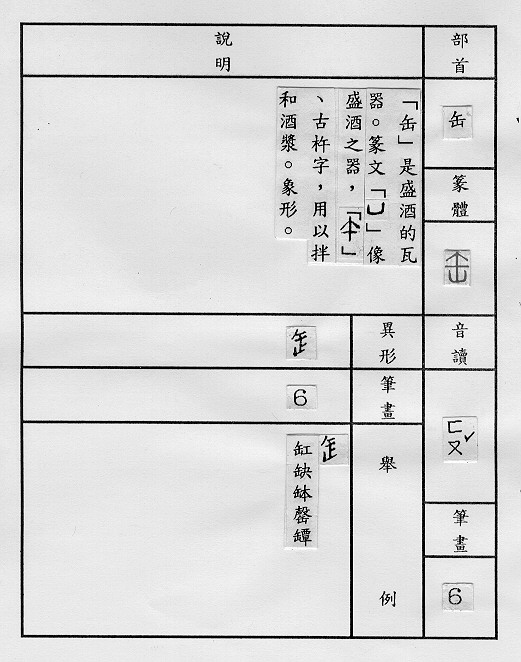 部首
缶
篆體
音讀
ㄈㄡˇ
筆畫
6
說明
「缶」是盛酒的瓦
器。篆文「凵」像
盛酒之器，「
」
、古杵字，用以拌
和酒漿。象形。
異形
筆畫
6
舉例
缸缺缽罄罈